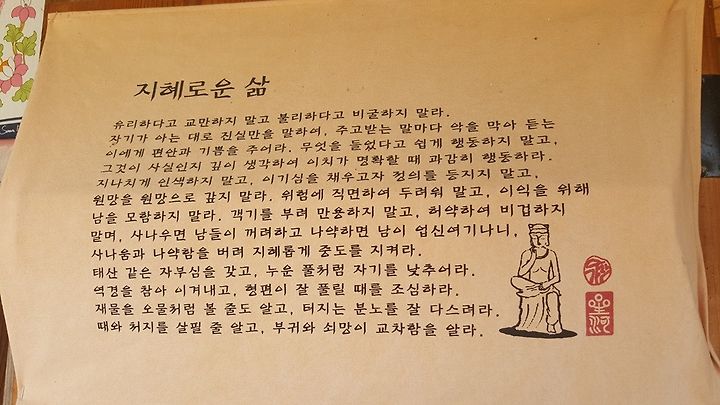 지혜로운 삶
유리하다고 교만하지 말고 불리하다고 비굴하지 말라.
자기가 아는 대로 진실만을 말하여, 주고받는 말마다 악을 막아 듣는
이에게 편안과 기쁨을 주어라. 무엇을 들었다고 쉽게 행동하지 말고,
그것이 사실인지 깊이 생각하여 이치가 명확할 때 과감히 행동하라.
지나치게 인색하지 말고, 이기심을 채우고자 정의를 등지지 말고,
원망을 원망으로 갚지 말라. 위험에 직면하여 두려워 말고, 이익을 위해
남을 모함하지 말라. 객기를 부려 만용하지 말고, 허약하여 비겁하지
말며, 사나우면 남들이 꺼려하고 나약하면 남이 업신여기나니,
사나움과 나약함을 버려 지혜롭게 중도를 지켜라.
태산 같은 자부심을 갖고, 누운 풀처럼 자기를 낮추어라.
역경을 참아 이겨내고, 형편이 잘 풀릴 때를 조심하라.
재물을 오물처럼 볼 줄도 알고, 터지는 분노를 잘 다스려라.
때와 처지를 살필 줄 알고, 부귀와 쇠망이 교차함을 알라.